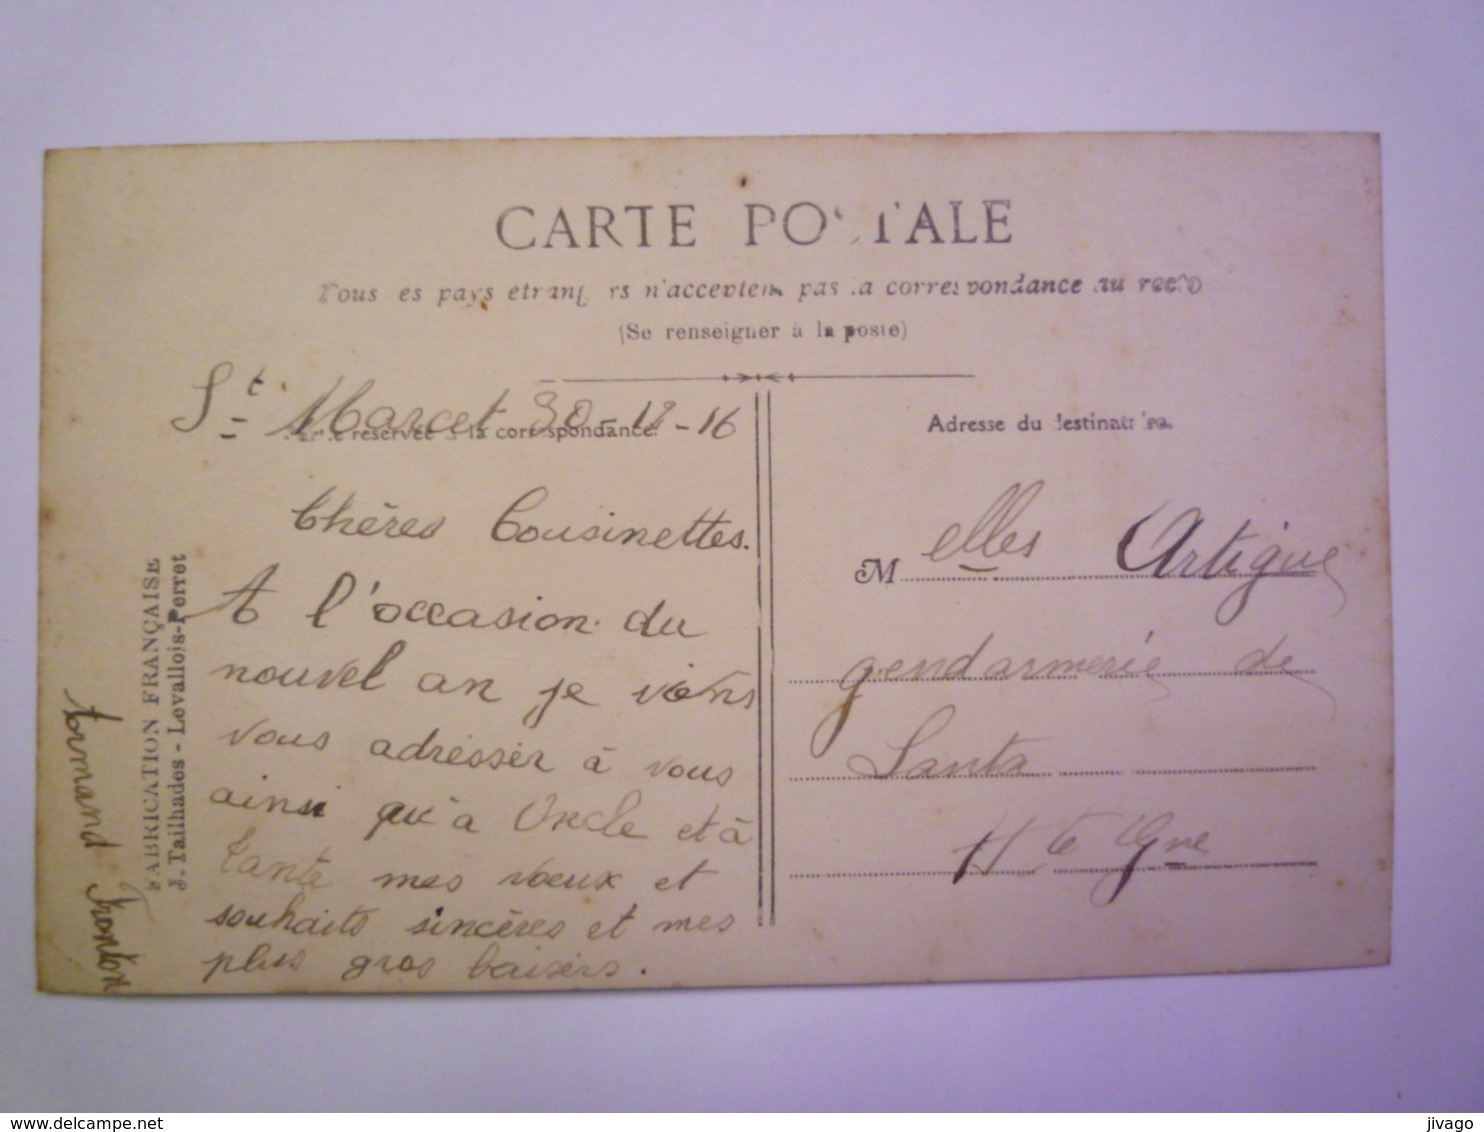 CARTE POSTALE
Tous les pays étrangers n'acceptent pas la correspondance au recto
(Se renseigner à la poste)
St Marcet 30-12-16
Partie réservée à la correspondance.
Adresse du destinataire.
Chères Cousinettes.
A l'occasion du
nouvel an je viens
vous adresser à vous
ainsi qu'à Oncle et à
Tante mes vœux et
souhaits sincères et mes
plus gros baisers.
Armand Fronton
FABRICATION FRANÇAISE
J. Tailhades - Levallois-Perret
Melles Artigue
gendarmerie de
Santa
Hte Gne
delcampe.net
jivago